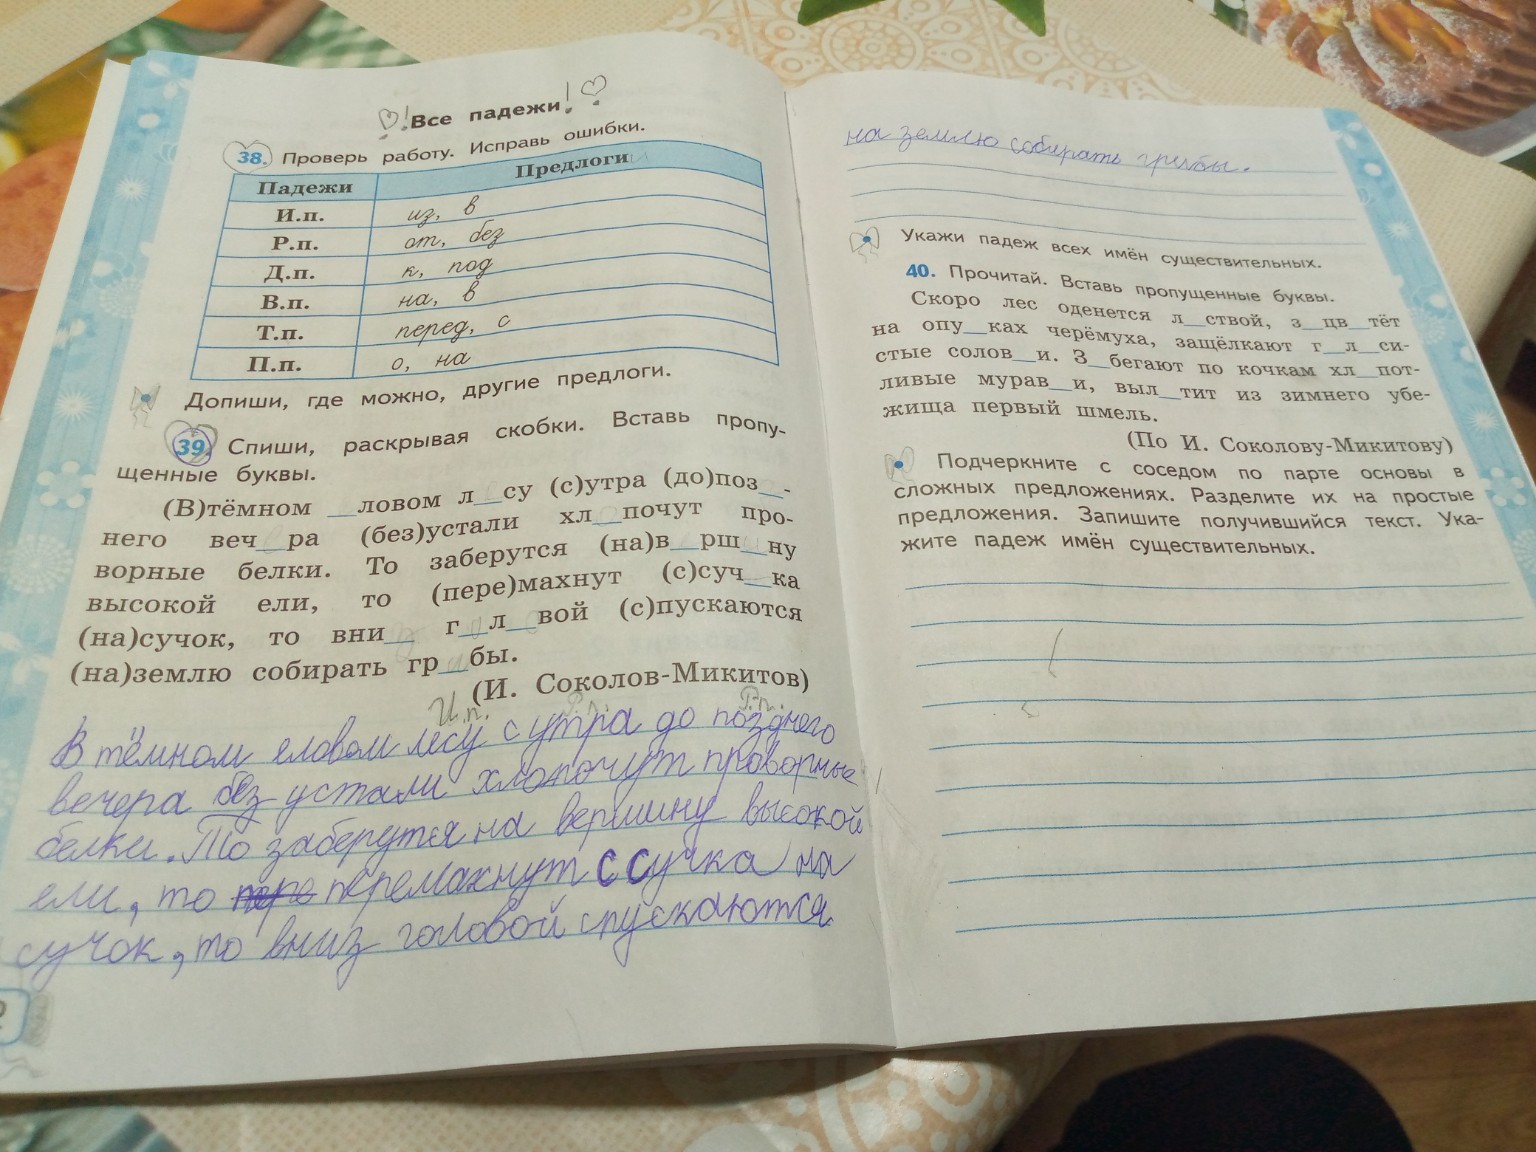 ! Все падежи !
38. Проверь работу. Исправь ошибки.
Падежи Предлоги
И.п. из, в
Р.п. от, без
Д.п. к, под
В.п. на, в
Т.п. перед, с
П.п. о, на
Допиши, где можно, другие предлоги.
39. Спиши, раскрывая скобки. Вставь пропу-
щенные буквы.
(В)тёмном __ловом л__су (с)утра (до)поз__-
него веч__ра (без)устали хл__почут про-
ворные белки. То заберутся (на)в__рш__ну
высокой ели, то (пере)махнут (с)суч__ка
(на)сучок, то вни__ г__л__вой (с)пускаются
(на)землю собирать гр__бы.
(И. Соколов-Микитов)
И.п. Р.п. Р.п.
В тёмном еловом лесу с утра до позднего
вечера без устали хлопочут проворные
белки. То заберутся на вершину высокой
ели, то перемахнут с сучка на
сучок, то вниз головой спускаются
на землю собирать грибы.
Укажи падеж всех имён существительных.
40. Прочитай. Вставь пропущенные буквы.
Скоро лес оденется л__ствой, з__цв__тёт
на опу__ках черёмуха, защёлкают г__л__си-
стые солов__и. З__бегают по кочкам хл__пот-
ливые мурав__и, выл__тит из зимнего убе-
жища первый шмель.
(По И. Соколову-Микитову)
Подчеркните с соседом по парте основы в
сложных предложениях. Разделите их на простые
предложения. Запишите получившийся текст. Ука-
жите падеж имён существительных.